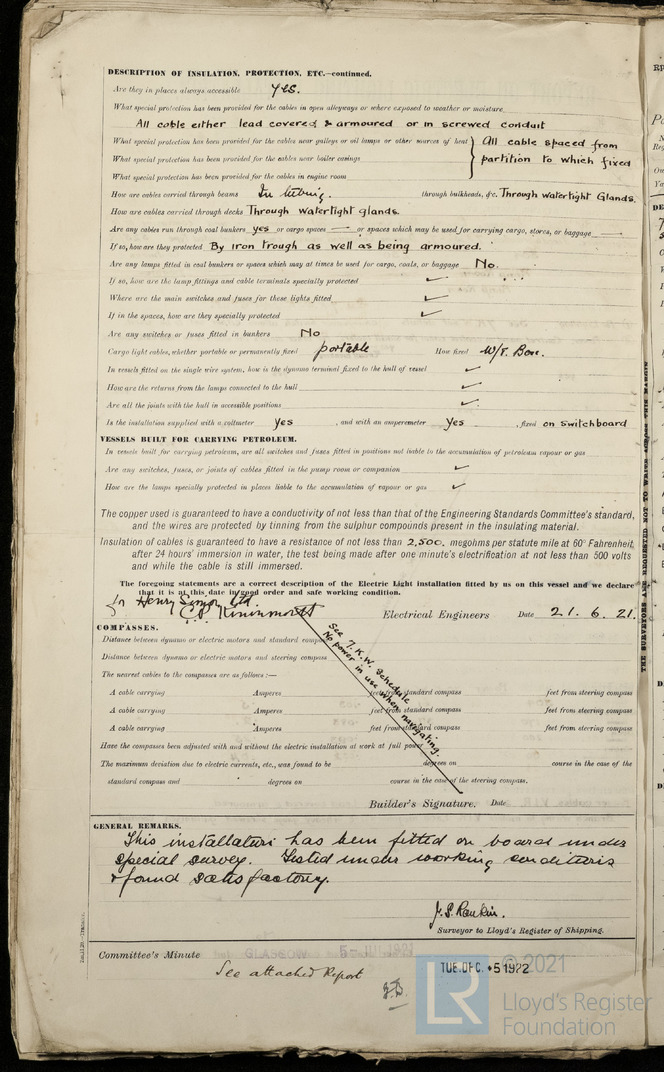 DESCRIPTION OF INSULATION, PROTECTION, ETC.—continued.
Are they in places always accessible Yes.
What special protection has been provided for the cables in open alleyways or where exposed to weather or moisture
All cable either lead covered & armoured or in screwed conduit
What special protection has been provided for the cables near galleys or oil lamps or other sources of heat } All cable spaced from
What special protection has been provided for the cables near boiler casings partition to which fixed
What special protection has been provided for the cables in engine room
How are cables carried through beams In tubing. through bulkheads, &c. Through Watertight Glands.
How are cables carried through decks Through watertight glands.
Are any cables run through coal bunkers yes or cargo spaces — or spaces which may be used for carrying cargo, stores, or baggage —
If so, how are they protected By iron trough as well as being armoured.
Are any lamps fitted in coal bunkers or spaces which may at times be used for cargo, coals, or baggage No.
If so, how are the lamp fittings and cable terminals specially protected ✓
Where are the main switches and fuses for these lights fitted ✓
If in the spaces, how are they specially protected ✓
Are any switches or fuses fitted in bunkers No
Cargo light cables, whether portable or permanently fixed portable How fixed W/T. Box.
In vessels fitted on the single wire system, how is the dynamo terminal fixed to the hull of vessel ✓
How are the returns from the lamps connected to the hull ✓
Are all the joints with the hull in accessible positions ✓
Is the installation supplied with a voltmeter Yes , and with an amperemeter Yes , fixed on switchboard
VESSELS BUILT FOR CARRYING PETROLEUM.
In vessels built for carrying petroleum, are all switches and fuses fitted in positions not liable to the accumulation of petroleum vapour or gas
Are any switches, fuses, or joints of cables fitted in the pump room or companion ✓
How are the lamps specially protected in places liable to the accumulation of vapour or gas ✓
The copper used is guaranteed to have a conductivity of not less than that of the Engineering Standards Committee's standard,
and the wires are protected by tinning from the sulphur compounds present in the insulating material.
Insulation of cables is guaranteed to have a resistance of not less than 2,500. megohms per statute mile at 60° Fahrenheit
after 24 hours' immersion in water, the test being made after one minute's electrification at not less than 500 volts
and while the cable is still immersed.
The foregoing statements are a correct description of the Electric Light installation fitted by us on this vessel and we declare
that it is at this date in good order and safe working condition.
Henry Simon Ltd
Electrical Engineers Date 21.6.21.
COMPASSES.
See T.K.W. Schedule
No power in use when navigating.
Distance between dynamo or electric motors and standard compass
Distance between dynamo or electric motors and steering compass
The nearest cables to the compasses are as follows:—
A cable carrying Amperes feet from standard compass feet from steering compass
A cable carrying Amperes feet from standard compass feet from steering compass
A cable carrying Amperes feet from standard compass feet from steering compass
Have the compasses been adjusted with and without the electric installation at work at full power
The maximum deviation due to electric currents, etc., was found to be degrees on course in the case of the
standard compass and degrees on course in the case of the steering compass.
Builder's Signature. Date
GENERAL REMARKS.
This installation has been fitted on board under
special survey. Tested under working conditions
& found satisfactory.
J.S. Rankin.
Surveyor to Lloyd's Register of Shipping.
Committee's Minute GLASGOW 5-JUL 1921
TUE. DEC. 5 1922
See attached Report
© 2021
LR
Lloyd's Register
Foundation
THE SURVEYORS ARE REQUESTED NOT TO WRITE ACROSS THIS MARGIN